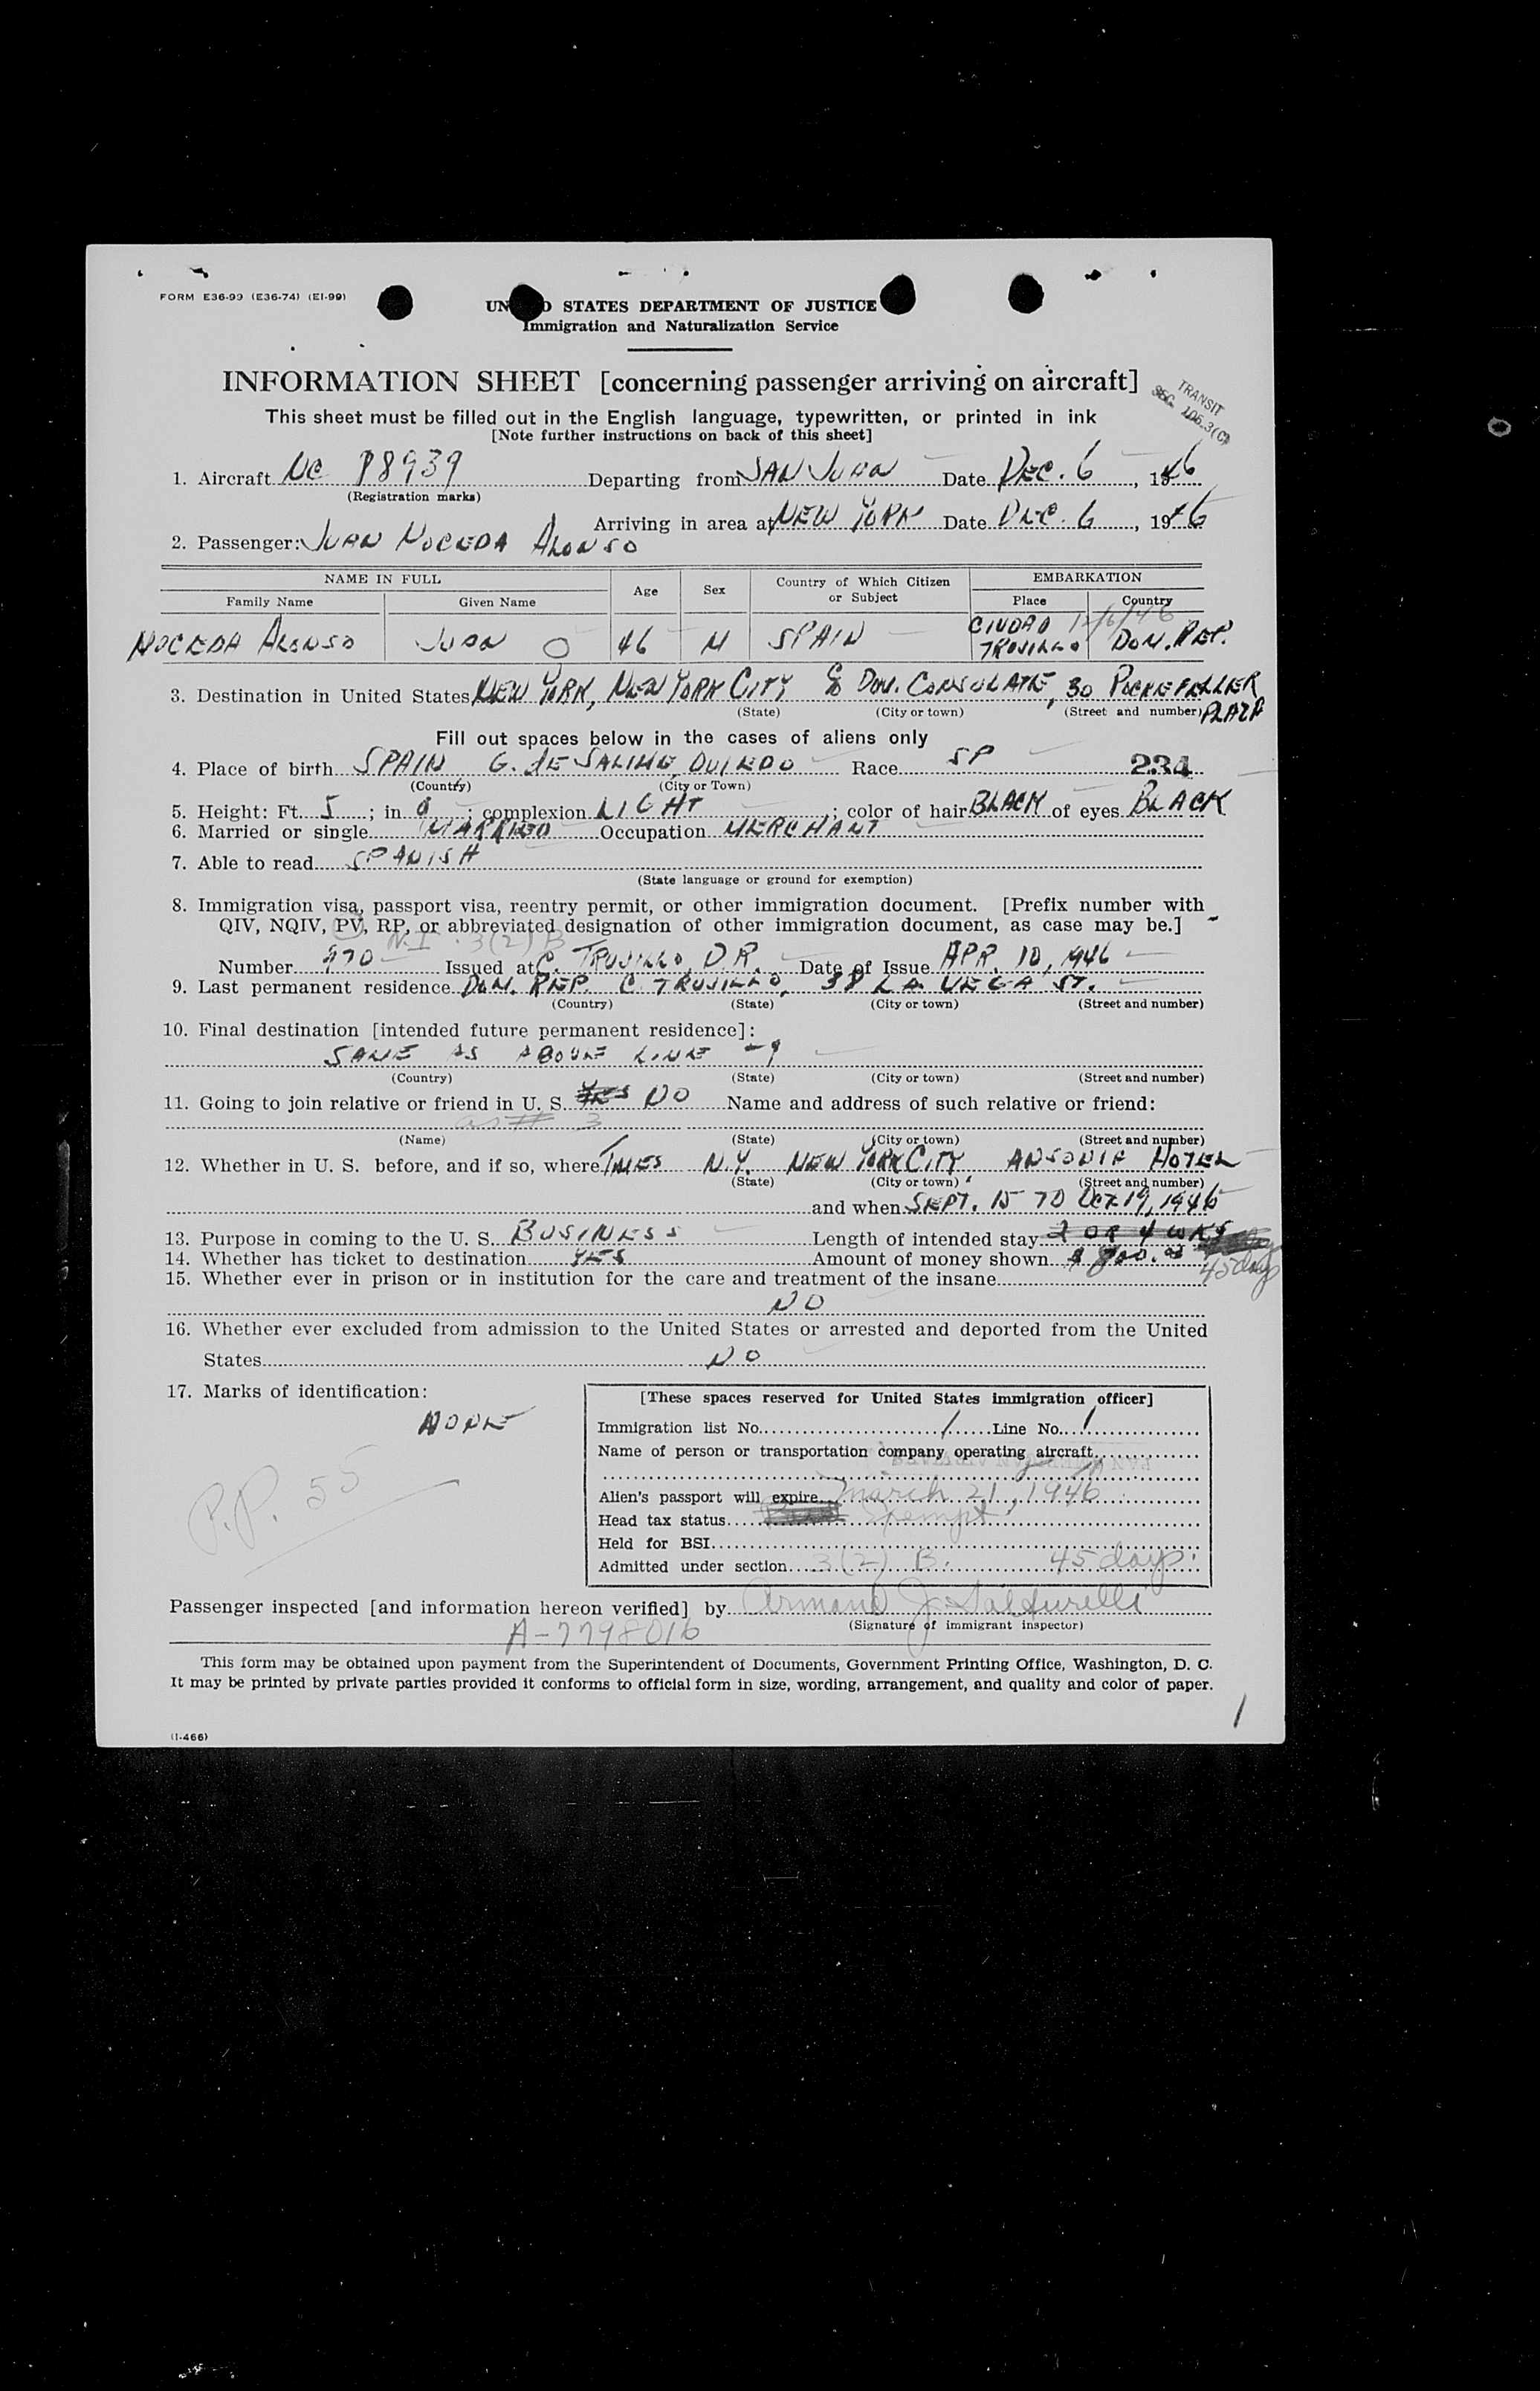 FORM E36-99 (E36-74) (EI-99)
UN D STATES DEPARTMENT OF JUSTICE
Immigration and Naturalization Service
INFORMATION SHEET [concerning passenger arriving on aircraft]
TRANSIT
SEC. 106.3(C)
This sheet must be filled out in the English language, typewritten, or printed in ink
[Note further instructions on back of this sheet]
1. Aircraft NC 88939 Departing from SAN JUAN Date DEC. 6, 1946
(Registration marks)
Arriving in area at NEW YORK Date DEC. 6, 1946
2. Passenger: JUAN NOCEDA ALONSO
NAME IN FULL Age Sex Country of Which Citizen or Subject EMBARKATION
Family Name Given Name Place Country
12/6/46
NOCEDA ALONSO JUAN O 46 M SPAIN CIUDAD TRUJILLO DOM. REP.
3. Destination in United States NEW YORK, NEW YORK CITY c/o DOM. CONSULATE, 30 ROCKEFELLER PLAZA
(State) (City or town) (Street and number)
Fill out spaces below in the cases of aliens only
4. Place of birth SPAIN G. DE SALIME, OVIEDO Race SP 234
(Country) (City or Town)
5. Height: Ft. 5; in ; complexion LIGHT; color of hair BLACK of eyes BLACK
6. Married or single MARRIED Occupation MERCHANT
7. Able to read SPANISH
(State language or ground for exemption)
8. Immigration visa, passport visa, reentry permit, or other immigration document. [Prefix number with
QIV, NQIV, PV, RP, or abbreviated designation of other immigration document, as case may be.]
N.I. 3(2) B
Number 970 Issued at C. TRUJILLO, D.R. Date of Issue APR. 10, 1946
9. Last permanent residence DOM. REP. C. TRUJILLO, 38 LA VEGA ST.
(Country) (State) (City or town) (Street and number)
10. Final destination [intended future permanent residence]:
SAME AS ABOVE LINE -9
(Country) (State) (City or town) (Street and number)
11. Going to join relative or friend in U. S. YES NO Name and address of such relative or friend:
as # 3
(Name) (State) (City or town) (Street and number)
12. Whether in U. S. before, and if so, where TIMES N.Y. NEW YORK CITY ANSONIA HOTEL
(State) (City or town) (Street and number)
and when SEPT. 15 TO OCT 19, 1946
13. Purpose in coming to the U. S. BUSINESS Length of intended stay 2 OR 4 WKS
14. Whether has ticket to destination YES Amount of money shown $ 800.00 45 days
15. Whether ever in prison or in institution for the care and treatment of the insane
NO
16. Whether ever excluded from admission to the United States or arrested and deported from the United
States NO
17. Marks of identification:
NONE
P.P. 55
[These spaces reserved for United States immigration officer]
Immigration list No. 1 Line No. 1
Name of person or transportation company operating aircraft
Alien's passport will expire March 21, 1946
Head tax status Exempt
Held for BSI
Admitted under section 3(2) B. 45 days.
Passenger inspected [and information hereon verified] by Armand J. Salturelli
(Signature of immigrant inspector)
A-7798016
This form may be obtained upon payment from the Superintendent of Documents, Government Printing Office, Washington, D. C.
It may be printed by private parties provided it conforms to official form in size, wording, arrangement, and quality and color of paper.
1
(I-466)